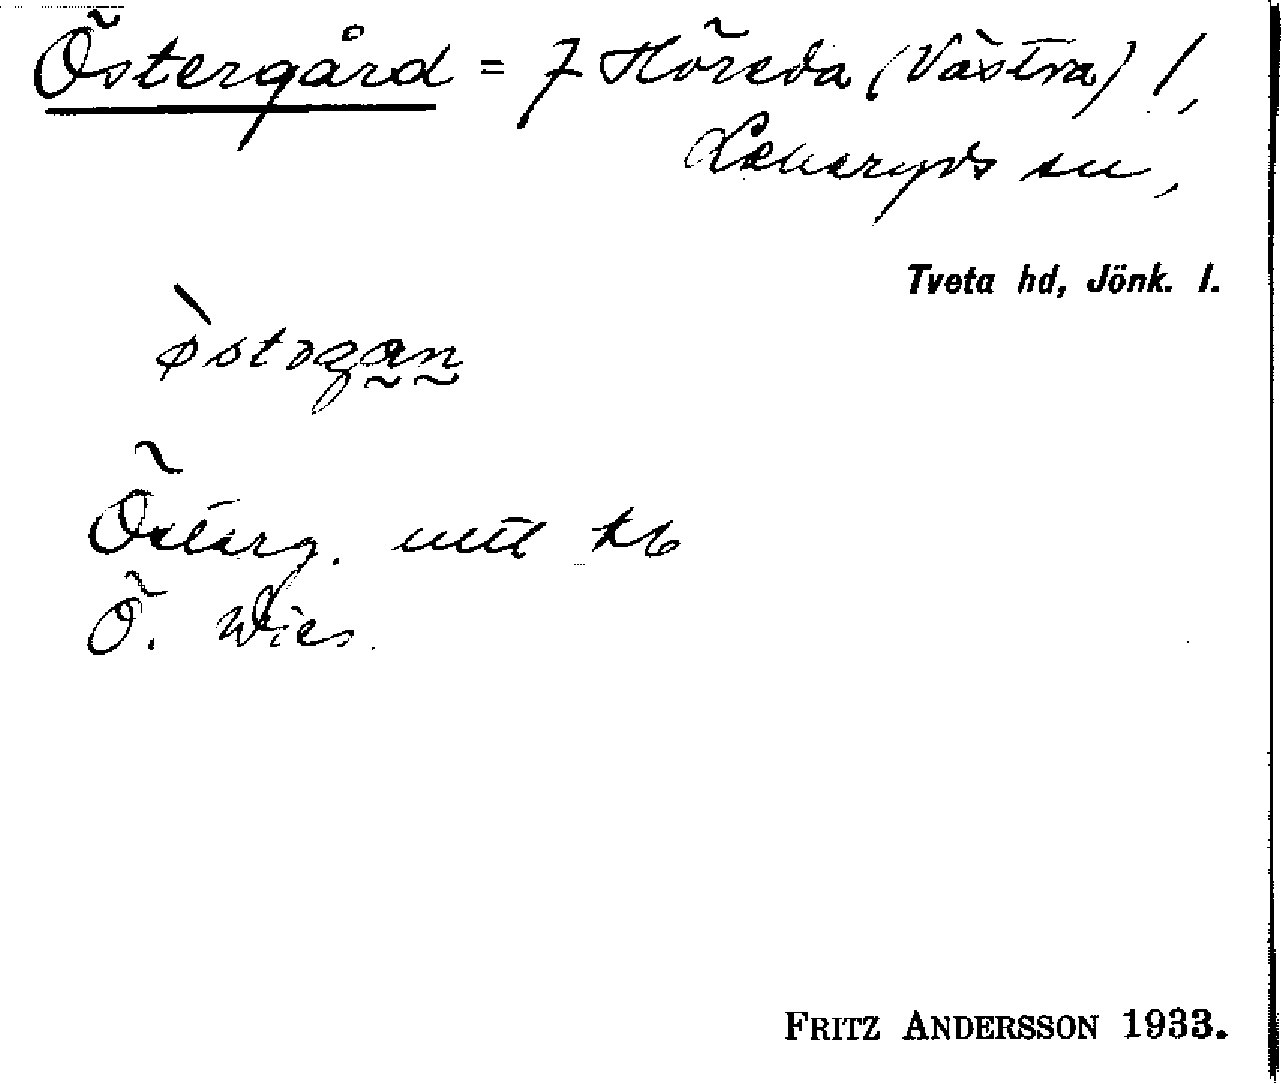 Östergård = 7 Höreda (Västra) /,
Lekeryds sn,
Tveta hd, Jönk. l.
Österg.
Ö. Wies.
FRITZ ANDERSSON 1933.